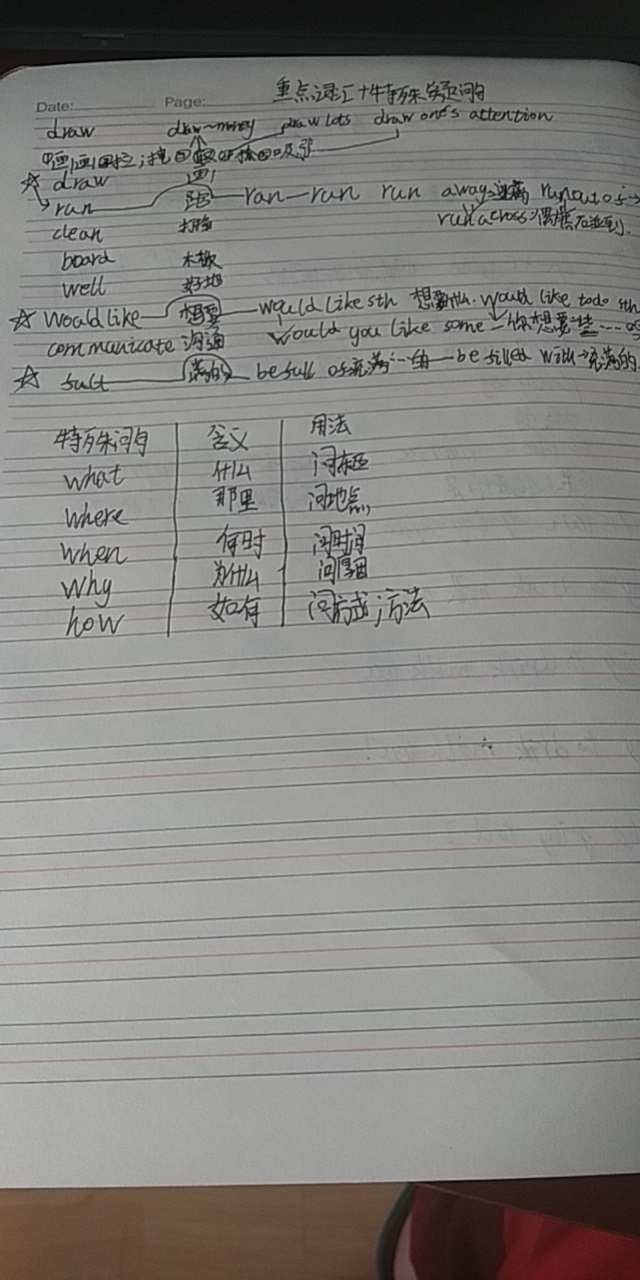 重点词汇+特殊疑问句
Date: Page:
draw draw money draw lots draw one's attention
①画,画图②拉;拽③④⑤吸引
☆ draw 画
run 跑 ran—run run away逃离 run out of
clean 打扫 run across 偶然碰到
board 木板
well 好地
☆ Would like 想要 would like sth 想要什么. would like to do sth
communicate 沟通 Would you like some 你想要些…吗
☆ full 满的 be full of充满…的 be filled with→充满的
特殊问句 含义 用法
what 什么 问东西
where 那里 问地点
when 何时 问时间
why 为什么 问原因
how 如何 问方式;方法